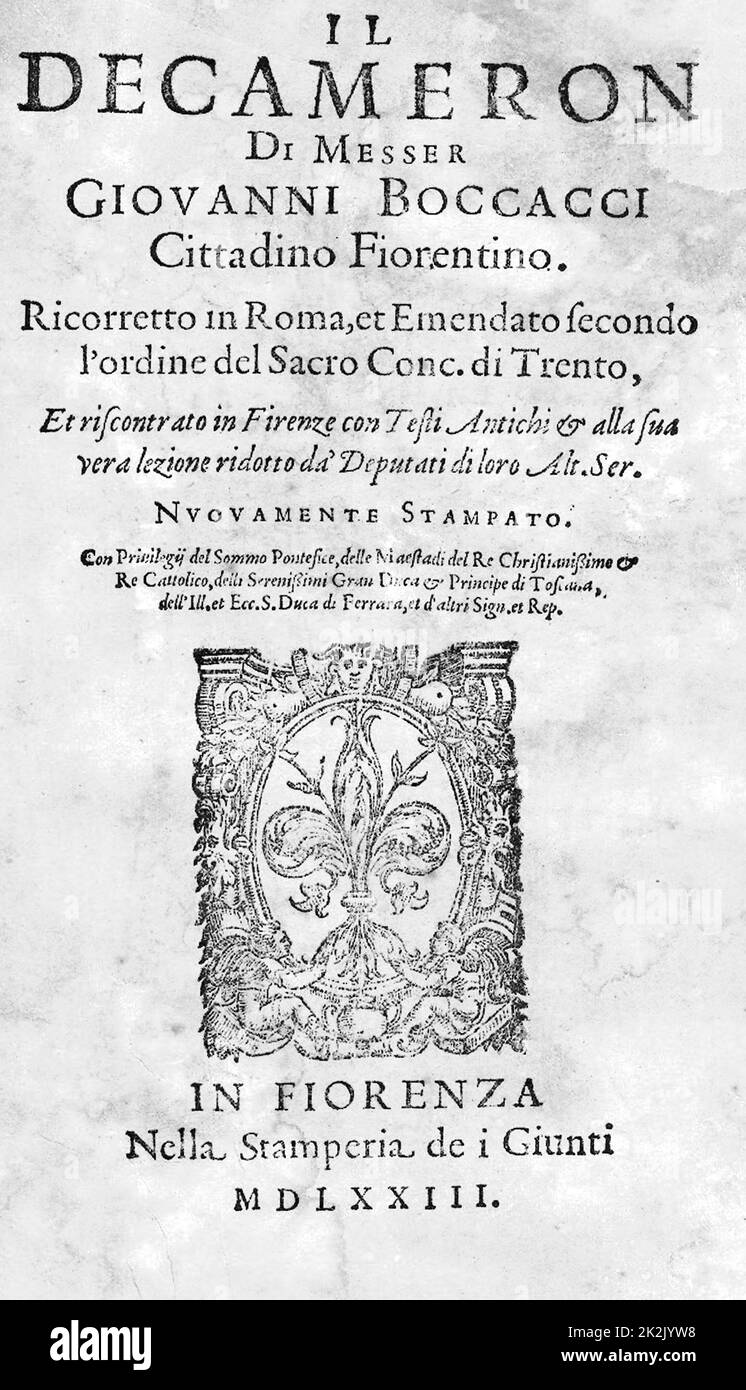 IL
DECAMERON
DI MESSER
GIOVANNI BOCCACCI
Cittadino Fiorentino.
Ricorretto in Roma, et Emendato ſecondo
l'ordine del Sacro Conc. di Trento,
Et riſcontrato in Firenze con Teſti Antichi & alla ſua
vera lezione ridotto da' Deputati di loro Alt. Ser.
NVOVAMENTE STAMPATO.
Con Priuilegij del Sommo Pontefice, delle Maeſtadi del Re Chriſtianiſſimo &
Re Cattolico, delli Sereniſſimi Gran Duca & Principe di Toscana,
dell'Ill. et Ecc. S. Duca di Ferrara, et d'altri Sign. et Rep.
IN FIORENZA
Nella Stamperia de i Giunti
MDLXXIII.
alamy
alamy
a
a
a
a
alamy
Image ID: 2K2JYW8
www.alamy.com